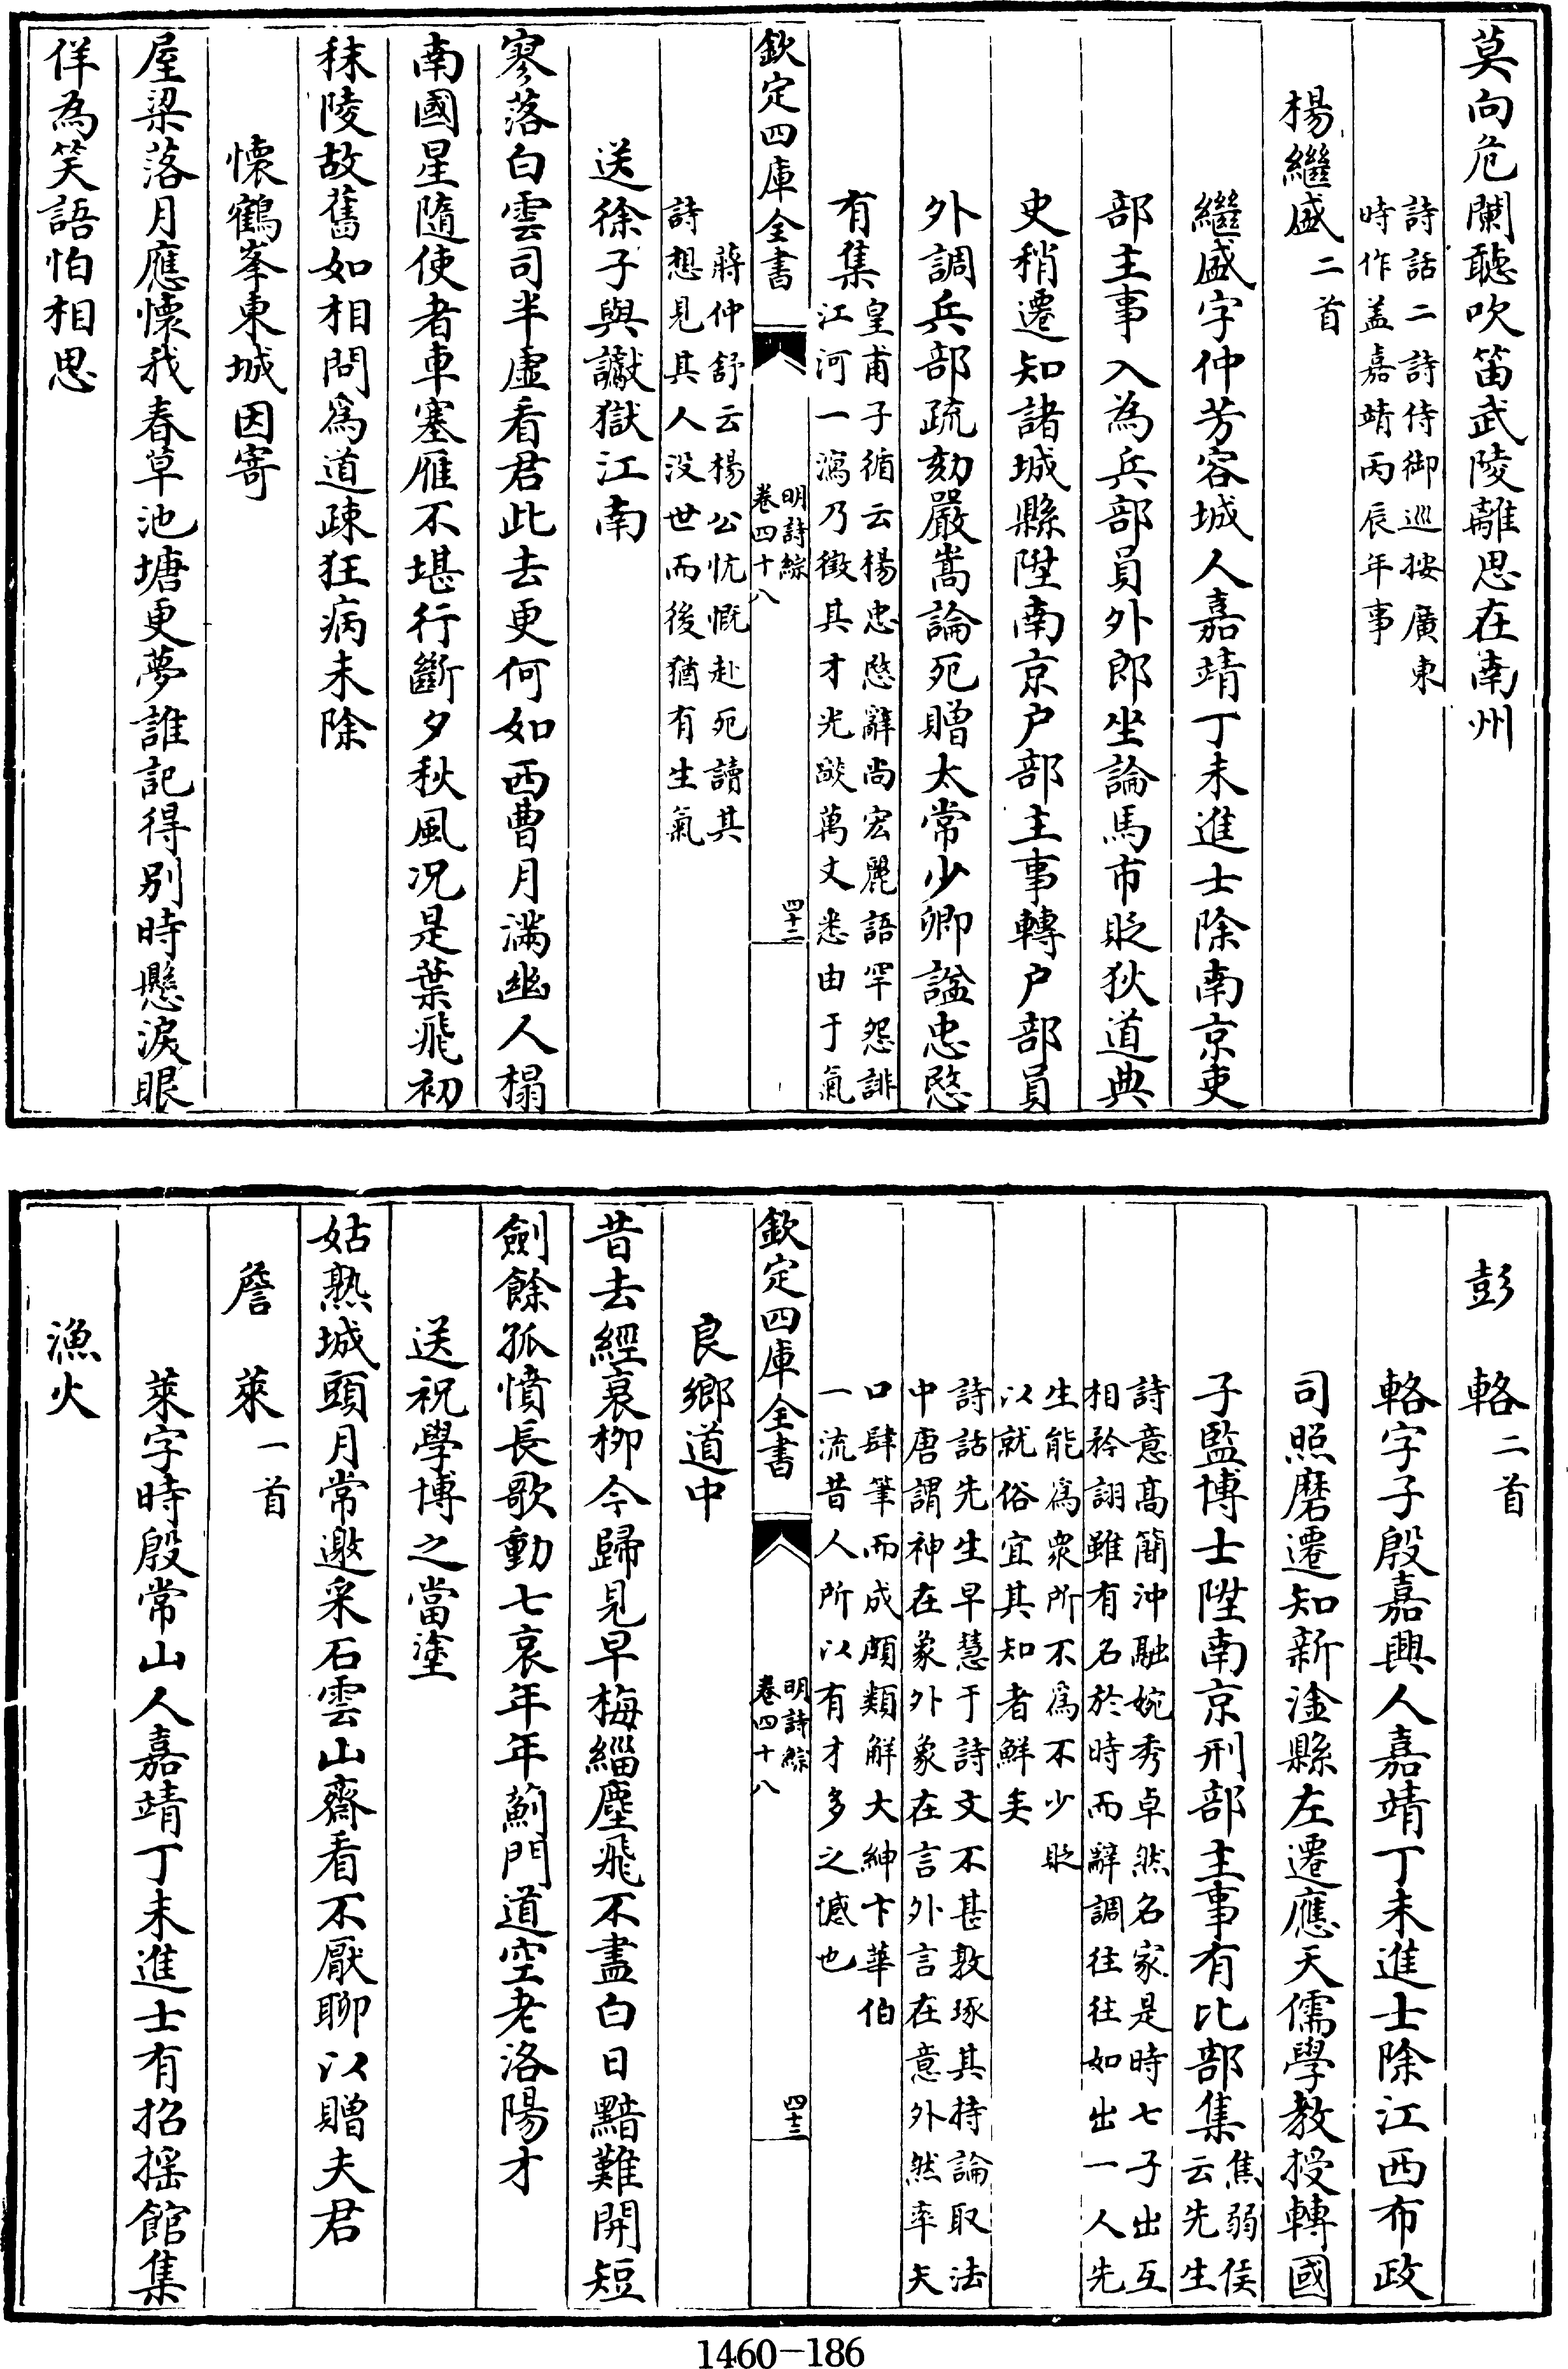 莫向危闌聽吹笛武陵離思在南州
詩話二詩侍御巡按廣東
時作盖嘉靖丙辰年事
楊繼盛二首
繼盛字仲芳容城人嘉靖丁未進士除南京吏
部主事入為兵部員外郎坐論馬市貶狄道典
史稍遷知諸城縣陞南京户部主事轉户部員
外調兵部疏劾嚴嵩論死贈太常少卿諡忠愍
有集
皇甫子循云楊忠愍辭尚宏麗語罕怨誹
江河一瀉乃徵其才光燄萬丈悉由于氣
欽定四庫全書
明詩綜
卷四十八
四十二
蔣仲舒云楊公忼慨赴死讀其
詩想見其人没世而後猶有生氣
送徐子與讞獄江南
寥落白雲司半虚看君此去更何如西曹月滿幽人榻
南國星隨使者車塞雁不堪行斷夕秋風况是葉飛初
秣陵故舊如相問爲道疎狂病未除
懷鶴峯東城因寄
屋梁落月應懷我春草池塘更夢誰記得别時懸淚眼
佯為笑語怕相思
彭輅二首
輅字子殷嘉興人嘉靖丁未進士除江西布政
司照磨遷知新淦縣左遷應天儒學教授轉國
子監博士陞南京刑部主事有比部集
焦弱侯
云先生
詩意高簡沖融婉秀卓然名家是時七子出互
相矜詡雖有名於時而辭調往往如出一人先
生能爲衆所不爲不少貶
以就俗宜其知者鮮矣
詩話先生早慧于詩文不甚敦琢其持論取法
中唐謂神在象外象在言外言在意外然率夫
口肆筆而成頗類解大紳卞華伯
一流昔人所以有才多之憾也
欽定四庫全書
明詩綜
卷四十八
四十三
良鄉道中
昔去經哀柳今歸見早梅緇塵飛不盡白日黯難開短
劍餘孤憤長歌動七哀年年薊門道空老洛陽才
送祝學博之當塗
姑熟城頭月常邀采石雲山齋看不厭聊以贈夫君
詹萊一首
萊字時殷常山人嘉靖丁未進士有招摇館集
漁火
1460-186